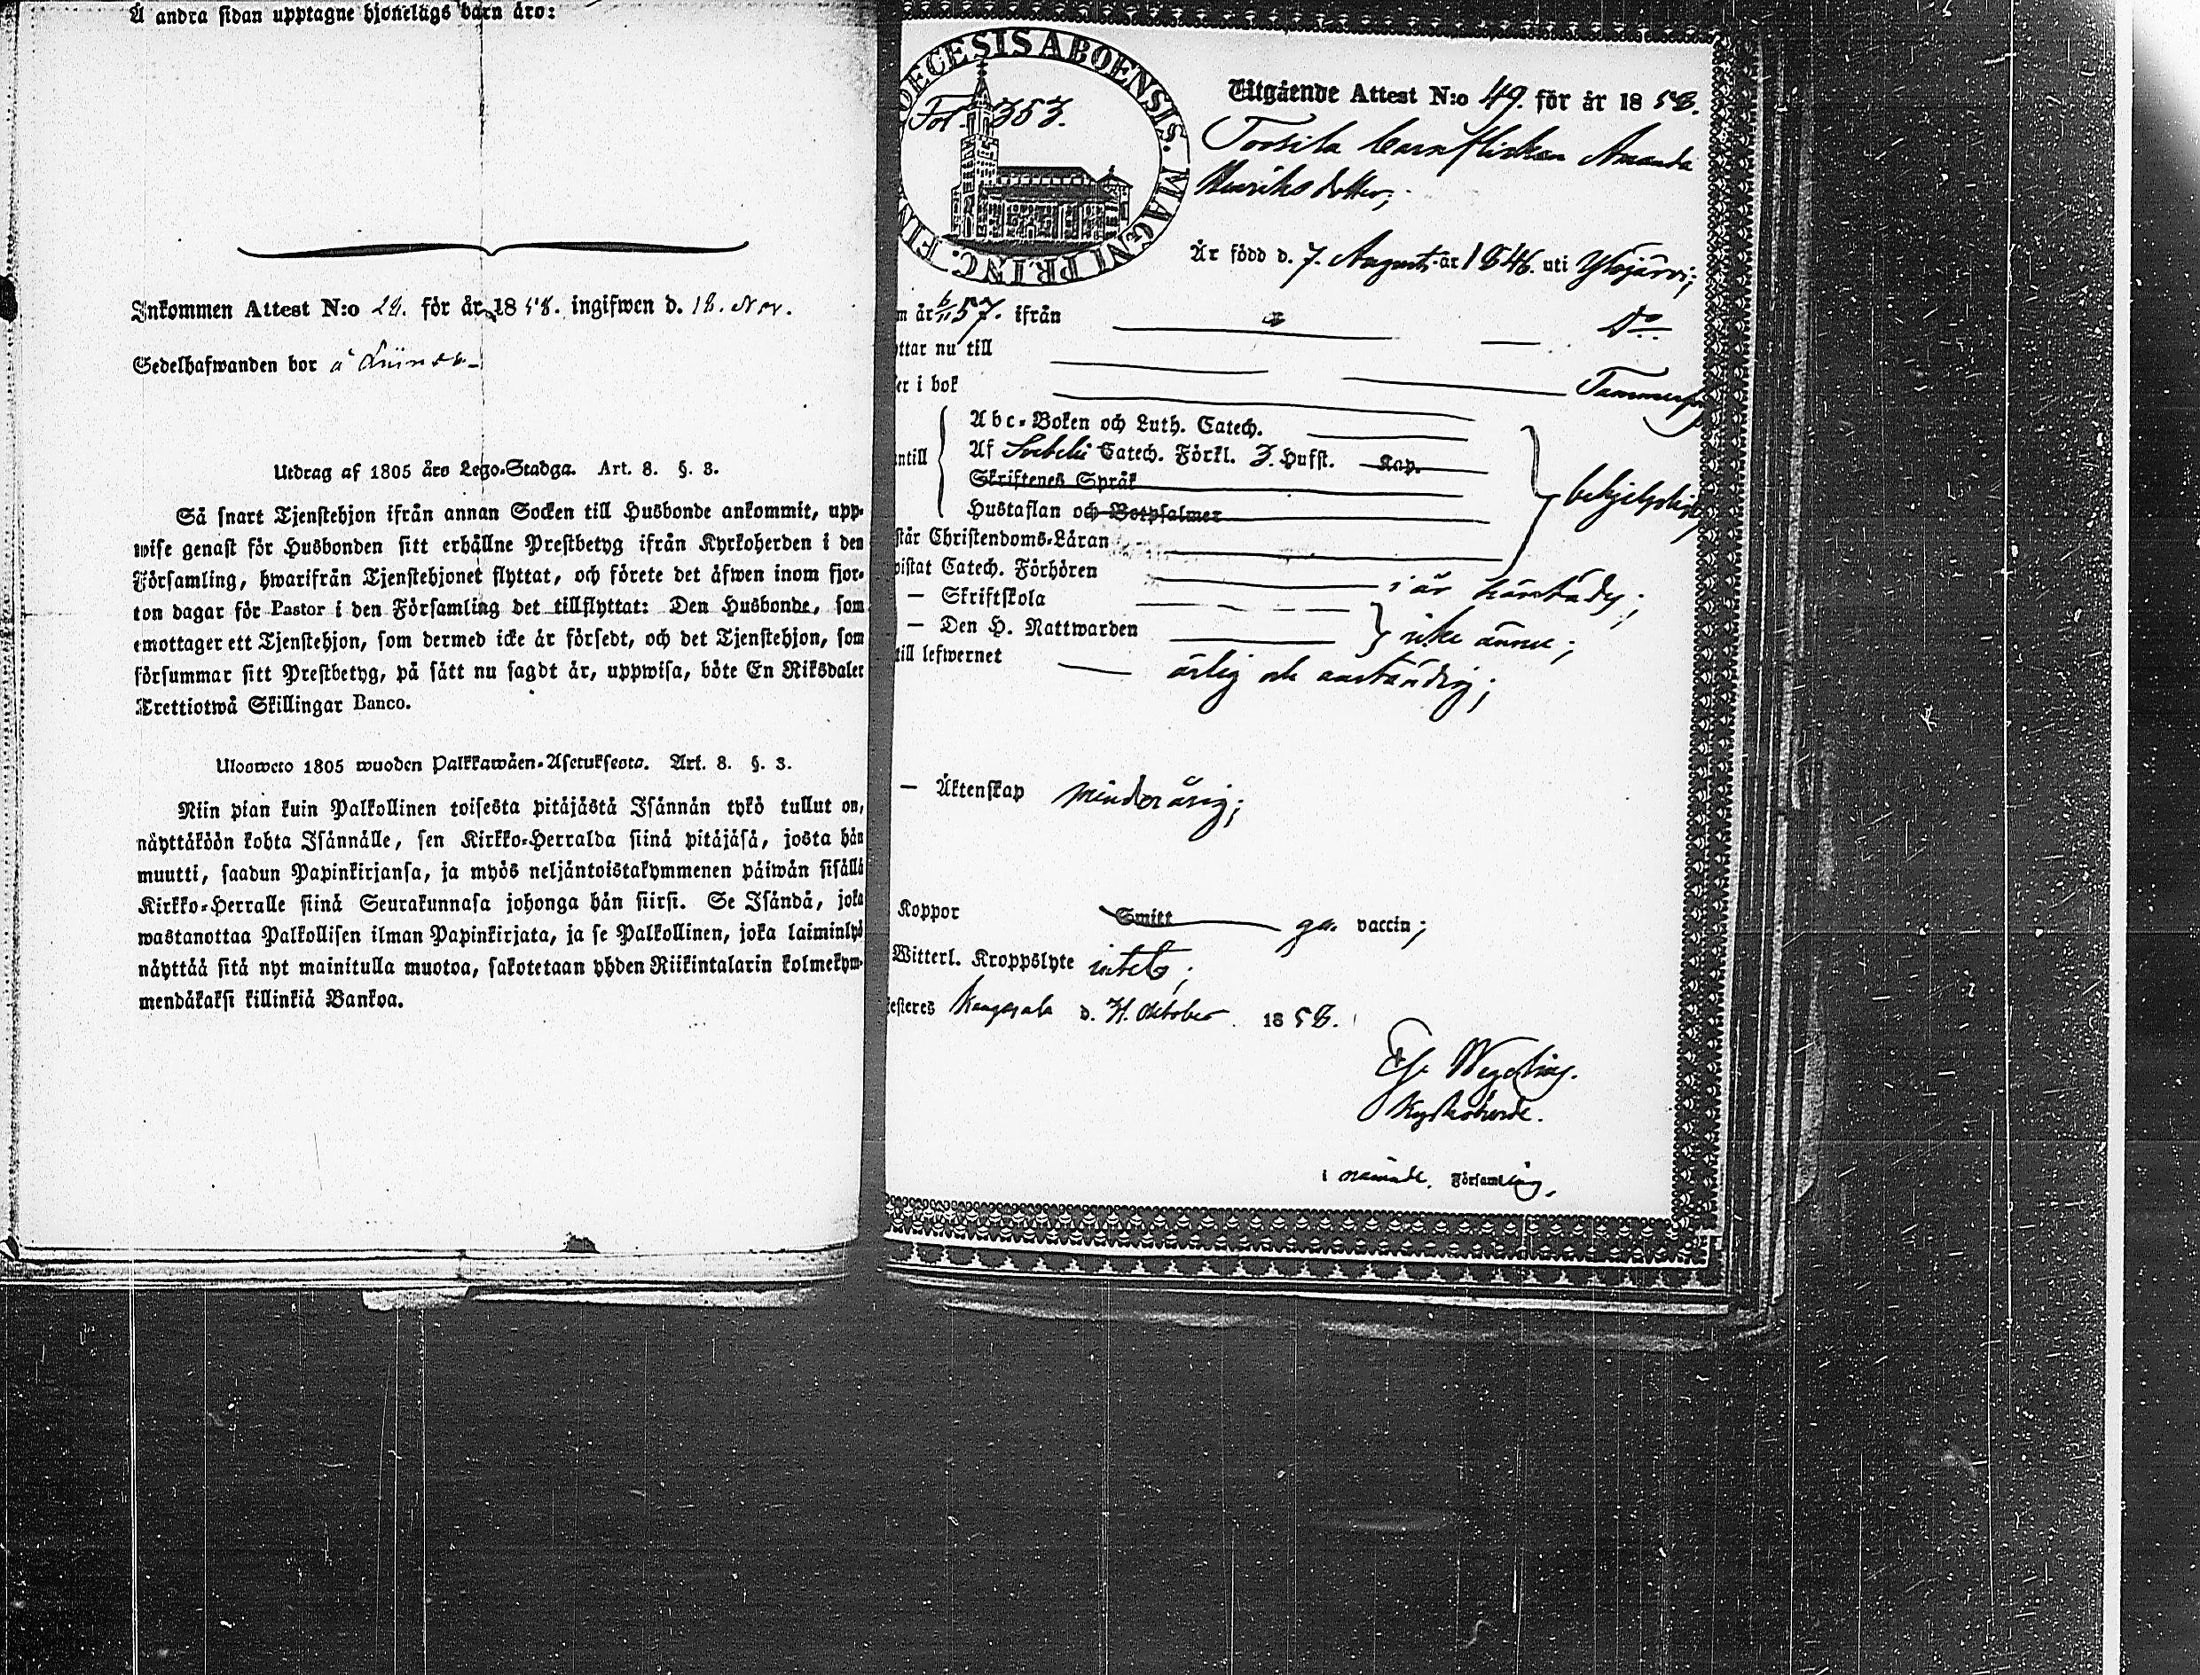 Å andra sidan upptagne hjonelags barn äro:
Inkommen Attest N:o 28. för år 1858. ingifwen d. 18. Nov.
Sedelhafwanden bor å
Utdrag af 1805 års Lego-Stadga. Art. 8. §. 3.
Så snart Tjenstehjon ifrån annan Socken till Husbonde ankommit, upp-
wise genast för Husbonden sitt erhållne Prestbetyg ifrån Kyrkoherden i den
Församling, hwarifrån Tjenstehjonet flyttat, och förete det äfwen inom fjor-
ton dagar för Pastor i den Församling det tillflyttat: Den Husbonde, som
emottager ett Tjenstehjon, som dermed icke är försedt, och det Tjenstehjon, som
försummar sitt Prestbetyg, på sätt nu sagdt är, uppwisa, böte En Riksdaler
Trettiotwå Skillingar Banco.
Ulosweto 1805 wuoden Palkkawäen-Asetuksesta. Art. 8. §. 3.
Niin pian kuin Palkollinen toisesta pitäjästä Isännän tykö tullut on,
näyttäköön kohta Isännälle, sen Kirkko-Herralda siinä pitäjäsä, josta hän
muutti, saadun Papinkirjansa, ja myös neljäntoistakymmenen päiwän sisällä
Kirkko-Herralle siinä Seurakunnasa johonga hän siirsi. Se Isändä, joka
wastanottaa Palkollisen ilman Papinkirjata, ja se Palkollinen, joka laiminlyö
näyttää sitä nyt mainitulla muotoa, sakotetaan yhden Riikintalarin kolmekym-
mendäkaksi killinkiä Bankoa.
DIOECESIS ABOENSIS. MAGNI PRINC. FIN
Fol. 353.
Utgående Attest N:o 49. för år 1858.
Toosila Barnflickan Amanda
Henriksdotter;
Är född d. 7. Augusti år 1846. uti Ylöjärvi;
m år 57. ifrån Do
ttar nu till
er i bok Tammerfors
Abc-Boken och Luth. Catech.
ntill Af Svebelii Catech. Förkl. 3. Hufst. Kap.
Skriftenes Språk
Hustaflan och Botpsalmer
behjelpligt
står Christendoms-Läran
vistat Catech. Förhören i år härstädes;
— Skriftskola
— Den H. Nattwarden icke ännu;
till lefwernet ärlig och anständig;
— Äktenskap minderårig;
Koppor Smitt ga. vaccin;
Witterl. Kroppslyte intet;
esteres Kangasala d. 31. Oktober 1858.
Wegelius.
Kyrkoherde.
i nämnde. Församling.